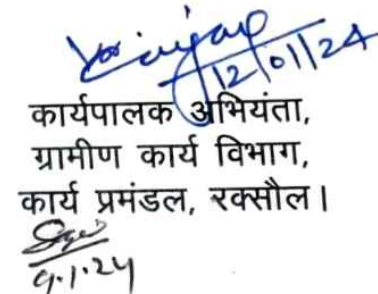 12/01/24
कार्यपालक अभियंता,
ग्रामीण कार्य विभाग,
कार्य प्रमंडल, रक्सौल।
9.1.24